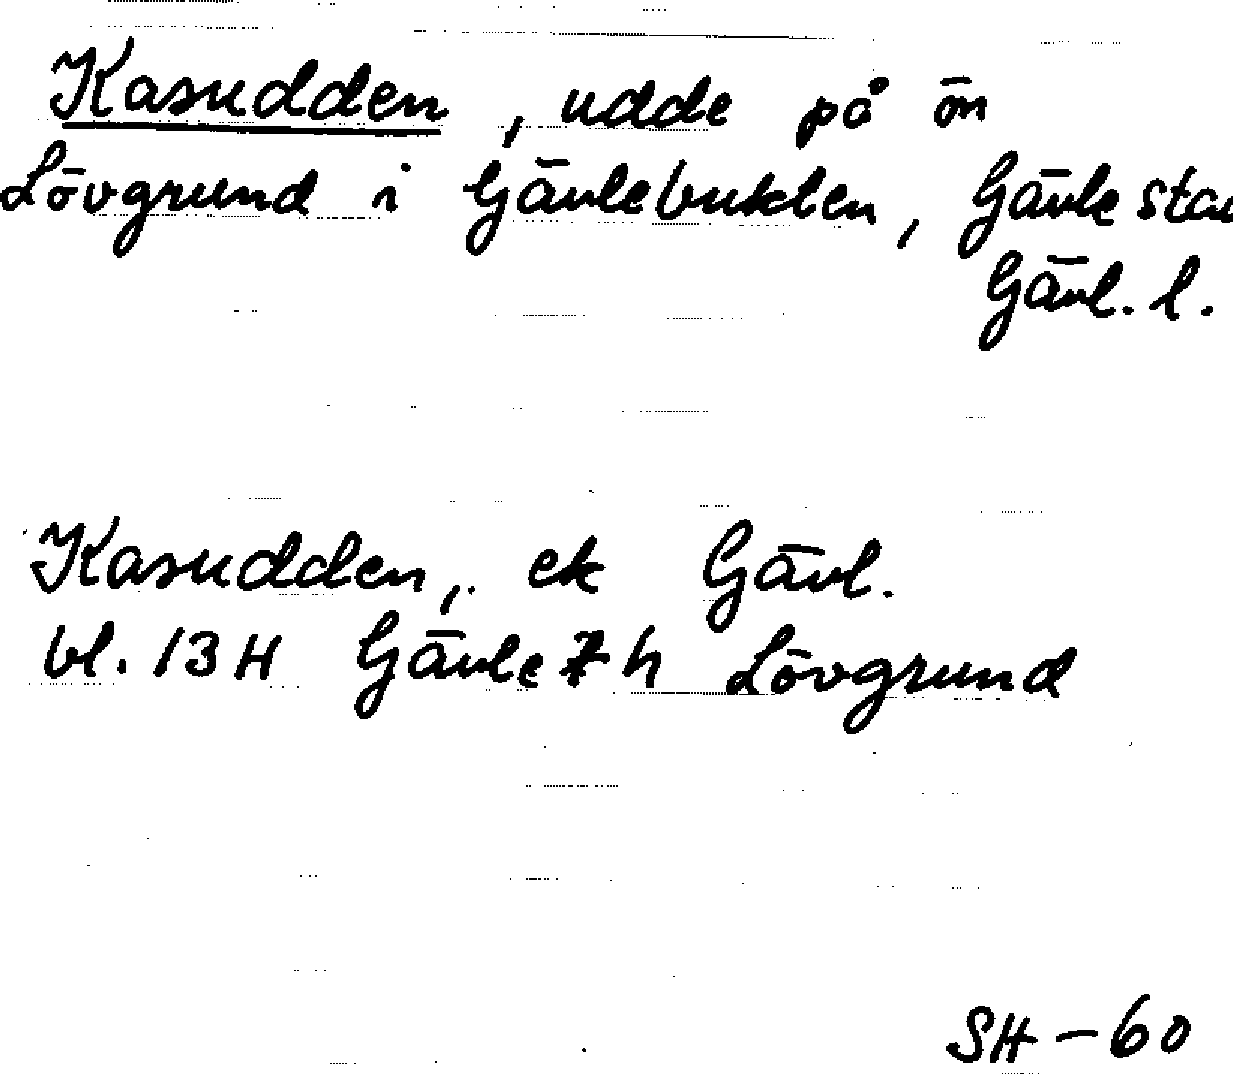 Kasudden, udde på ön
Lövgrund i Gävlebukten, Gävle sta
Gävl. l.
Kasudden, ek Gävl.
bl. 13H Gävle 7h Lövgrund
SH-60